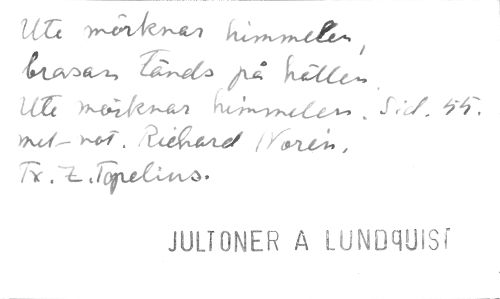 Ute mörknar himmelen,
brasan tänds på hällen.
Ute mörknar himmelen. Sid. 55.
met-not. Richard Norén.
Tx. Z. Topelius.
JULTONER A LUNDQUIST